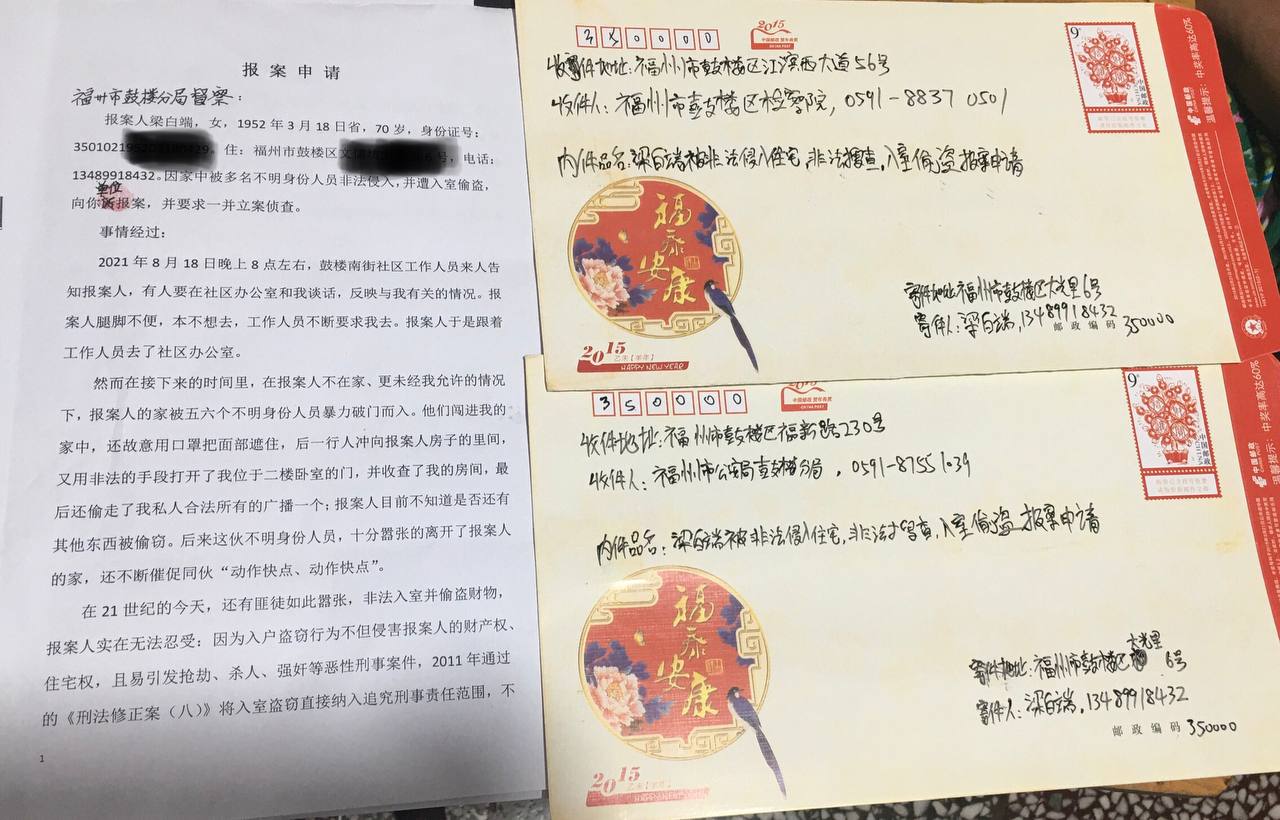 报案申请
福州市鼓楼分局督察：
报案人梁白端，女，1952年3月18日省，70岁，身份证号：
35010219520 。住：福州市鼓楼区 号，电话：
13489918432。因家中被多名不明身份人员非法侵入，并遭入室偷盗，
单位
向你 报案，并要求一并立案侦查。
事情经过：
2021年8月18日晚上8点左右，鼓楼南街社区工作人员来人告
知报案人，有人要在社区办公室和我谈话，反映与我有关的情况。报
案人腿脚不便，本不想去，工作人员不断要求我去。报案人于是跟着
工作人员去了社区办公室。
然而在接下来的时间里，在报案人不在家、更未经我允许的情况
下，报案人的家被五六个不明身份人员暴力破门而入。他们闯进我的
家中，还故意用口罩把面部遮住，后一行人冲向报案人房子的里间，
又用非法的手段打开了我位于二楼卧室的门，并收查了我的房间，最
后还偷走了我私人合法所有的广播一个；报案人目前不知道是否还有
其他东西被偷窃。后来这伙不明身份人员，十分嚣张的离开了报案人
的家，还不断催促同伙“动作快点、动作快点”。
在21世纪的今天，还有匪徒如此嚣张，非法入室并偷盗财物，
报案人实在无法忍受：因为入户盗窃行为不但侵害报案人的财产权、
住宅权，且易引发抢劫、杀人、强奸等恶性刑事案件，2011年通过
的《刑法修正案（八）》将入室盗窃直接纳入追究刑事责任范围，不
1
350000
2015
中国邮政 贺年有奖
CHINA POST
9元
中国邮政 CHINA
收件地址：福州市鼓楼区江滨西大道56号
收件人：福州市鼓楼区检察院，0591-8837 0501
内件品名：梁白端被非法侵入住宅，非法搜查，入室偷盗 报案申请
福泰安康
寄件地址：福州市鼓楼区大光里6号
寄件人：梁白端，13489918432
邮政编码 350000
2015
乙未【羊年】
HAPPY NEW YEAR
温馨提示：中奖率高达60%
中国邮政
CHINA POST
350000
CHINA POST
9元
中国邮政 CHINA
收件地址：福州市鼓楼区福新路230号
收件人：福州市公安局鼓楼分局，0591-87551039
内件品名：梁白端被非法侵入住宅，非法搜查，入室偷盗 报案申请
福泰安康
大光里
寄件地址：福州市鼓楼区 6号
寄件人：梁白端，13489918432
邮政编码 350000
2015
乙未【羊年】
HAPPY NEW YEAR
温馨提示：中奖率高达60%
中国邮政
CHINA POST